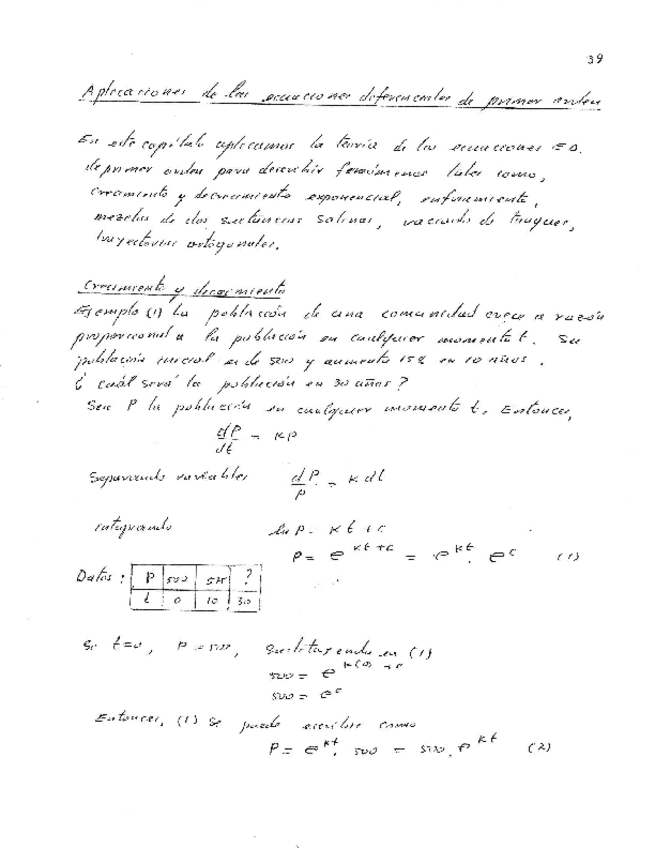 39
Aplicaciones de las ecuaciones diferenciales de primer orden
En este capítulo aplicamos la teoría de las ecuaciones E.D.
de primer orden para describir fenómenos tales como,
crecimiento y decrecimiento exponencial, enfriamiento,
mezclas de dos sustancias salinas, vaciado de tanques,
trayectorias ortogonales.
Crecimiento y decrecimiento
Ejemplo (1) La población de una comunidad crece a razón
proporcional a la población en cualquier momento t. Su
población inicial es de 500 y aumenta 15% en 10 años.
¿ cuál será la población en 30 años ?
Sea P la población en cualquier momento t. Entonces,
dP/dt = KP
Separando variables dP/P = K dt
integrando ln P = Kt + c
P = e^{Kt+c} = e^{Kt} . e^c (1)
Datos : P 500 575 ?
t 0 10 30
Si t=0, P = 500, Sustituyendo en (1)
500 = e^{K(0)+c}
500 = e^c
Entonces, (1) se puede escribir como
P = e^{Kt} . 500 = 500 . e^{Kt} (2)